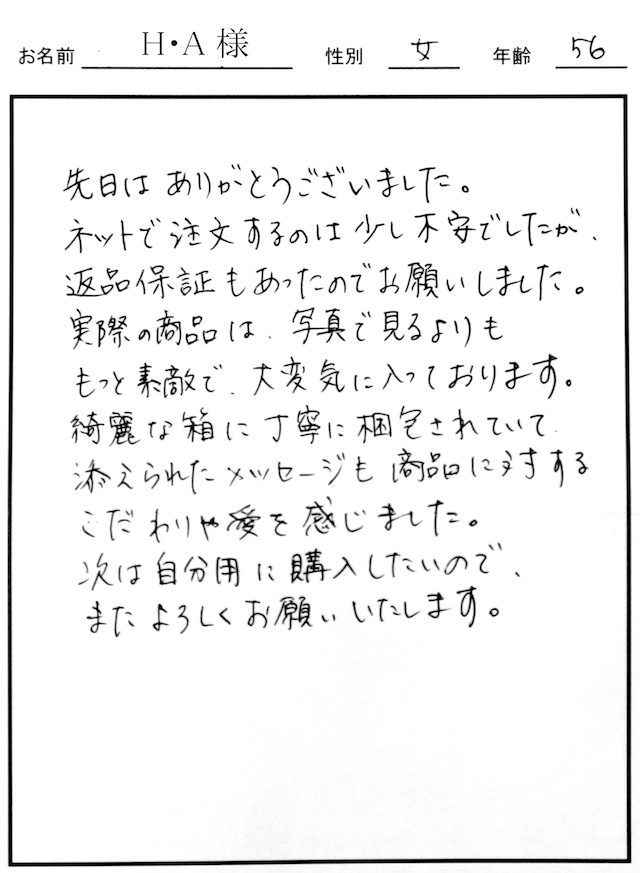 お名前 H・A 様 性別 女 年齢 56
先日は ありがとうございました。
ネットで注文するのは少し不安でしたが、
返品保証もあったのでお願いしました。
実際の商品は、写真で見るよりも
もっと素敵で、大変気に入っております。
綺麗な箱に丁寧に梱包されていて
添えられたメッセージも商品に対する
こだわりや愛を感じました。
次は自分用に購入したいので、
またよろしくお願いいたします。